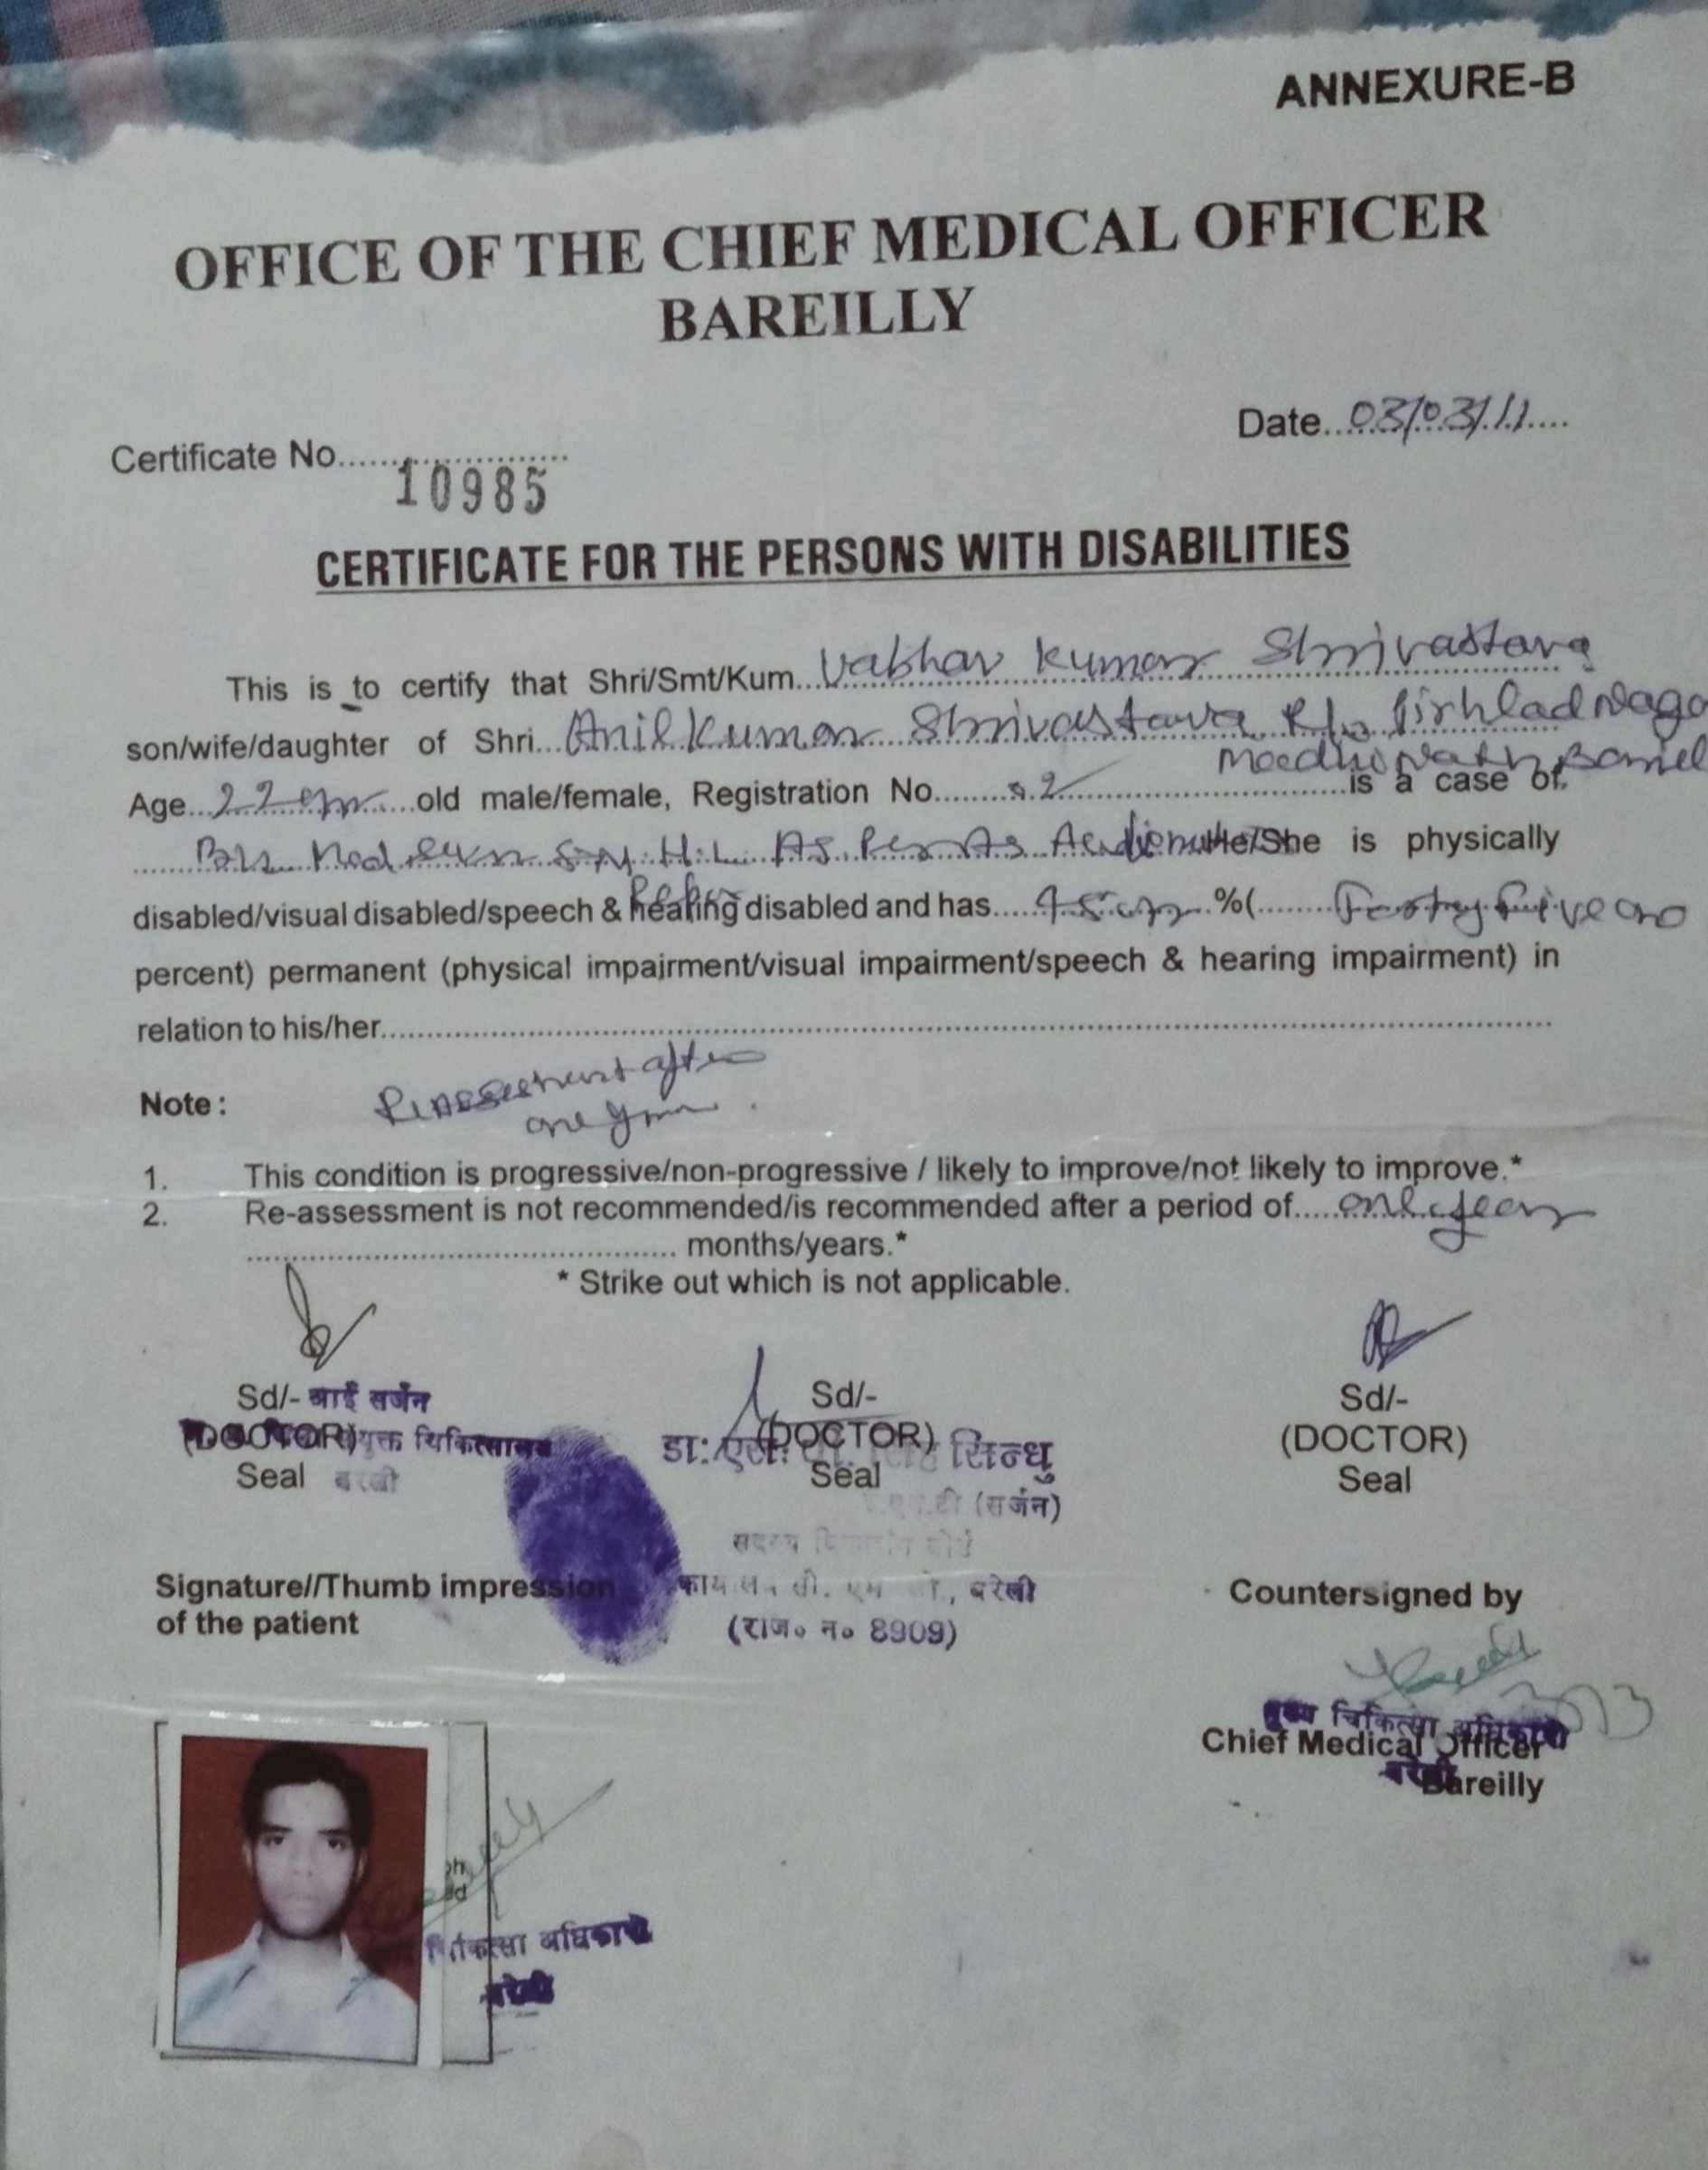 ANNEXURE-B
OFFICE OF THE CHIEF MEDICAL OFFICER
BAREILLY
Date...03/03/11....
Certificate No.....................
10985
CERTIFICATE FOR THE PERSONS WITH DISABILITIES
This is to certify that Shri/Smt/Kum...Vabhav Kumar Shrivastava
son/wife/daughter of Shri...Anil Kumar Shrivastava R/o Nagar
Age...22 old male/female, Registration No........2...............is a case of.
S.N.H.L. As Per He/She is physically
disabled/visual disabled/speech & hearing disabled and has.....45 %(........Forty Five
percent) permanent (physical impairment/visual impairment/speech & hearing impairment) in
relation to his/her................................................
Note :
Reassessment after
one year.
1. This condition is progressive/non-progressive / likely to improve/not likely to improve.*
2. Re-assessment is not recommended/is recommended after a period of.....one year
................................ months/years.*
* Strike out which is not applicable.
Sd/- आई सर्जन
(DOCTOR) संयुक्त चिकित्सालय
Seal बरेली
Sd/-
(DOCTOR)
डा. सिन्धु
Seal
(सर्जन)
Sd/-
(DOCTOR)
Seal
Signature//Thumb impression
of the patient
बरेली
(राज० न० 8909)
Countersigned by
मुख्य चिकित्सा अधिकारी
Chief Medical Officer
बरेली
Bareilly
चिकित्सा अधिकारी
बरेली